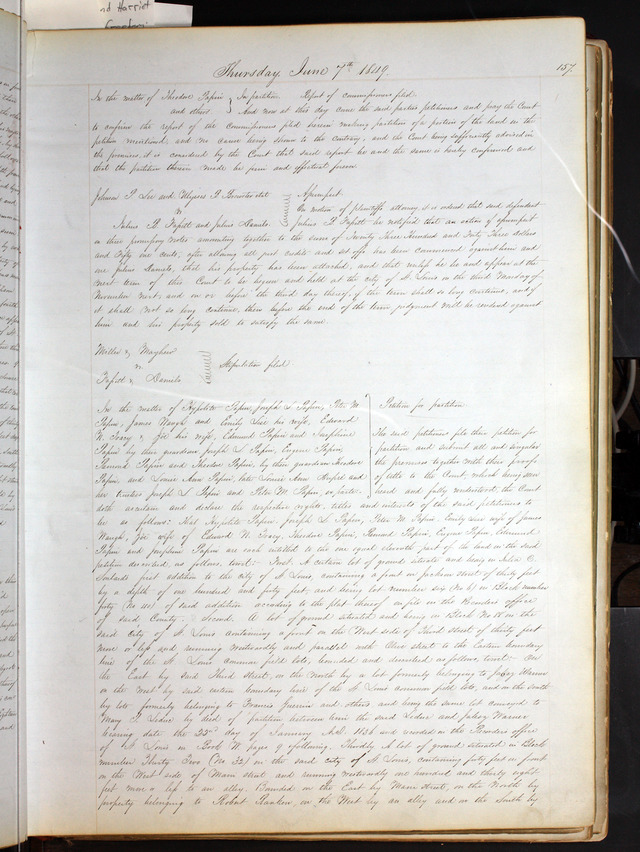 nd Harriet
Thursday June 7th 1849. 157.
In the matter of Theodore Papin In partition. Report of commissioners filed.
and others And now at this day came the said parties petitioners and pray the Court
to confirm the report of the Commissioners filed herein making partition of a portion of the land in the
petition mentioned, and no cause being shown to the contrary, and the Court being sufficiently advised in
the premises, it is considered by the Court that said report be and the same is hereby confirmed and
that the partition therein made be firm and effectual forever
Johnson P. Lee and Ulysses P. Brewster Assumpsit.
vs On motion of plaintiffs attorney it is ordered that said defendant
Julius B. and Julius Daniels. Julius B. be notified that an action of assumpsit
on three promissory notes amounting together to the sum of Twenty Three Hundred and Forty Three dollars
and Fifty six cents, after allowing all just credits and set offs has been commenced against him and
one Julius Daniels, that his property has been attached, and that unless he be and appear at the
next term of this Court to be begun and held at the city of St Louis on the third Monday of
November next, and on or before the third day thereof if the term shall so long continue, and if
it shall not so long continue, then before the end of the term judgment will be rendered against
him and his property sold to satisfy the same.
Miller & Mayhew
vs Stipulation filed
& Daniels
In the matter of Hypolite Papin, Joseph L Papin, Peter M. Petition for partition
Papin, James Waugh and Emily Lise his wife, Edward
W. Ivory & Zoe his wife, Edmund Papin and Josephine The said petitioners file their petition for
Papin by their guardian Joseph L Papin, Eugene Papin, partition and submit all and singular
Papin and Theodore Papin, by their guardian Theodore the premises together with their proofs
Papin, and Louise Ann Papin, late Louise Ann and of title to the Court, which being seen
her trustees Joseph L Papin and Peter M. Papin, ex parte. heard and fully understood, the Court
doth ascertain and declare the respective rights, titles and interests of the said petitioners to
be as follows: That Hypolite Papin, Joseph L Papin, Peter M. Papin, Emily Lise wife of James
Waugh, Zoe wife of Edward W. Ivory, Theodore Papin, Papin, Eugene Papin, Edmund
Papin and Josephine Papin are each entitled to the one equal eleventh part of the land in the said
petition described, as follows, towit:- First. A certain lot of ground situate and being in Julia C.
Soulard's first addition to the city of St. Louis, containing a front on Jackson street of thirty feet
by a depth of one hundred and forty feet, and being lot number six (No 6) in Block number
forty (No 40) of said addition according to the plat thereof on file in the Recorders office
of said County. Second. A lot of ground situated and being in Block No in the
said City of St Louis containing a front on the West side of Third street of thirty feet
more or less and running westwardly and parallel with Olive street to the Eastern boundary
line of the St Louis common field lots, bounded and described as follows, towit:- On
the East by said Third street, on the North by a lot formerly belonging to Jabez Warner
on the West by said eastern boundary line of the St Louis common field lots, and on the South
by lots formerly belonging to Francis Guerin and others and being the same lot conveyed to
Mary P. Leduc by deed of partition between him the said Leduc and Jabez Warner
bearing date the 25th day of January A.D. 1836 and recorded in the Recorders office
of St Louis in Book W. page 9 & following. Thirdly. A lot of ground situated in Block
number Thirty Two (No 32) in the said city of St. Louis, containing fifty feet on front
on the West side of Main street and running westwardly one hundred and thirty eight
feet more or less to an alley. Bounded on the East by Main street, on the North by
property belonging to Robert Rankin, on the West by an alley and on the South by